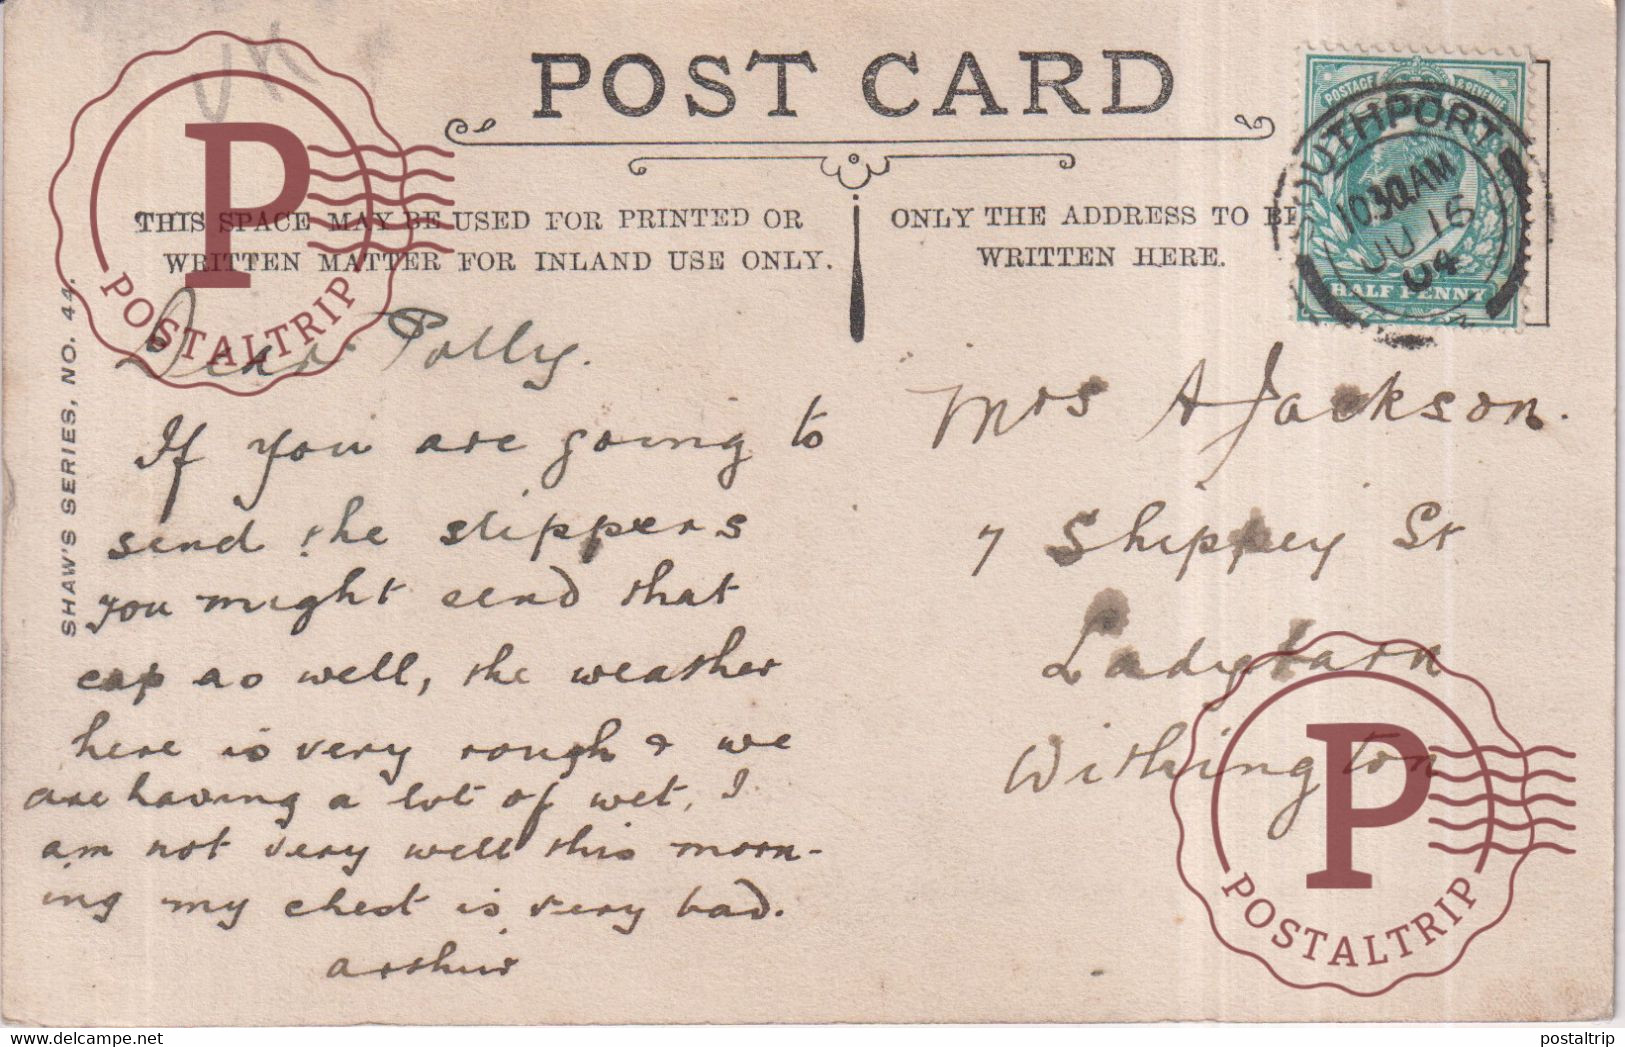 POST CARD
THIS SPACE MAY BE USED FOR PRINTED OR
WRITTEN MATTER FOR INLAND USE ONLY.
ONLY THE ADDRESS TO BE
WRITTEN HERE.
SHAW'S SERIES, NO. 44.
POSTAGE & REVENUE
HALF PENNY
SOUTHPORT
10.30 AM
JU 16
04
Dear Polly.
If you are going to
send the slippers
you might send that
cap as well, the weather
here is very rough & we
are having a lot of wet. I
am not very well this morn-
ing my chest is very bad.
Arthur
Mrs A Jackson.
7 Shippey St
Ladybarn
Withington
P
POSTALTRIP
P
POSTALTRIP
www.delcampe.net
postaltrip